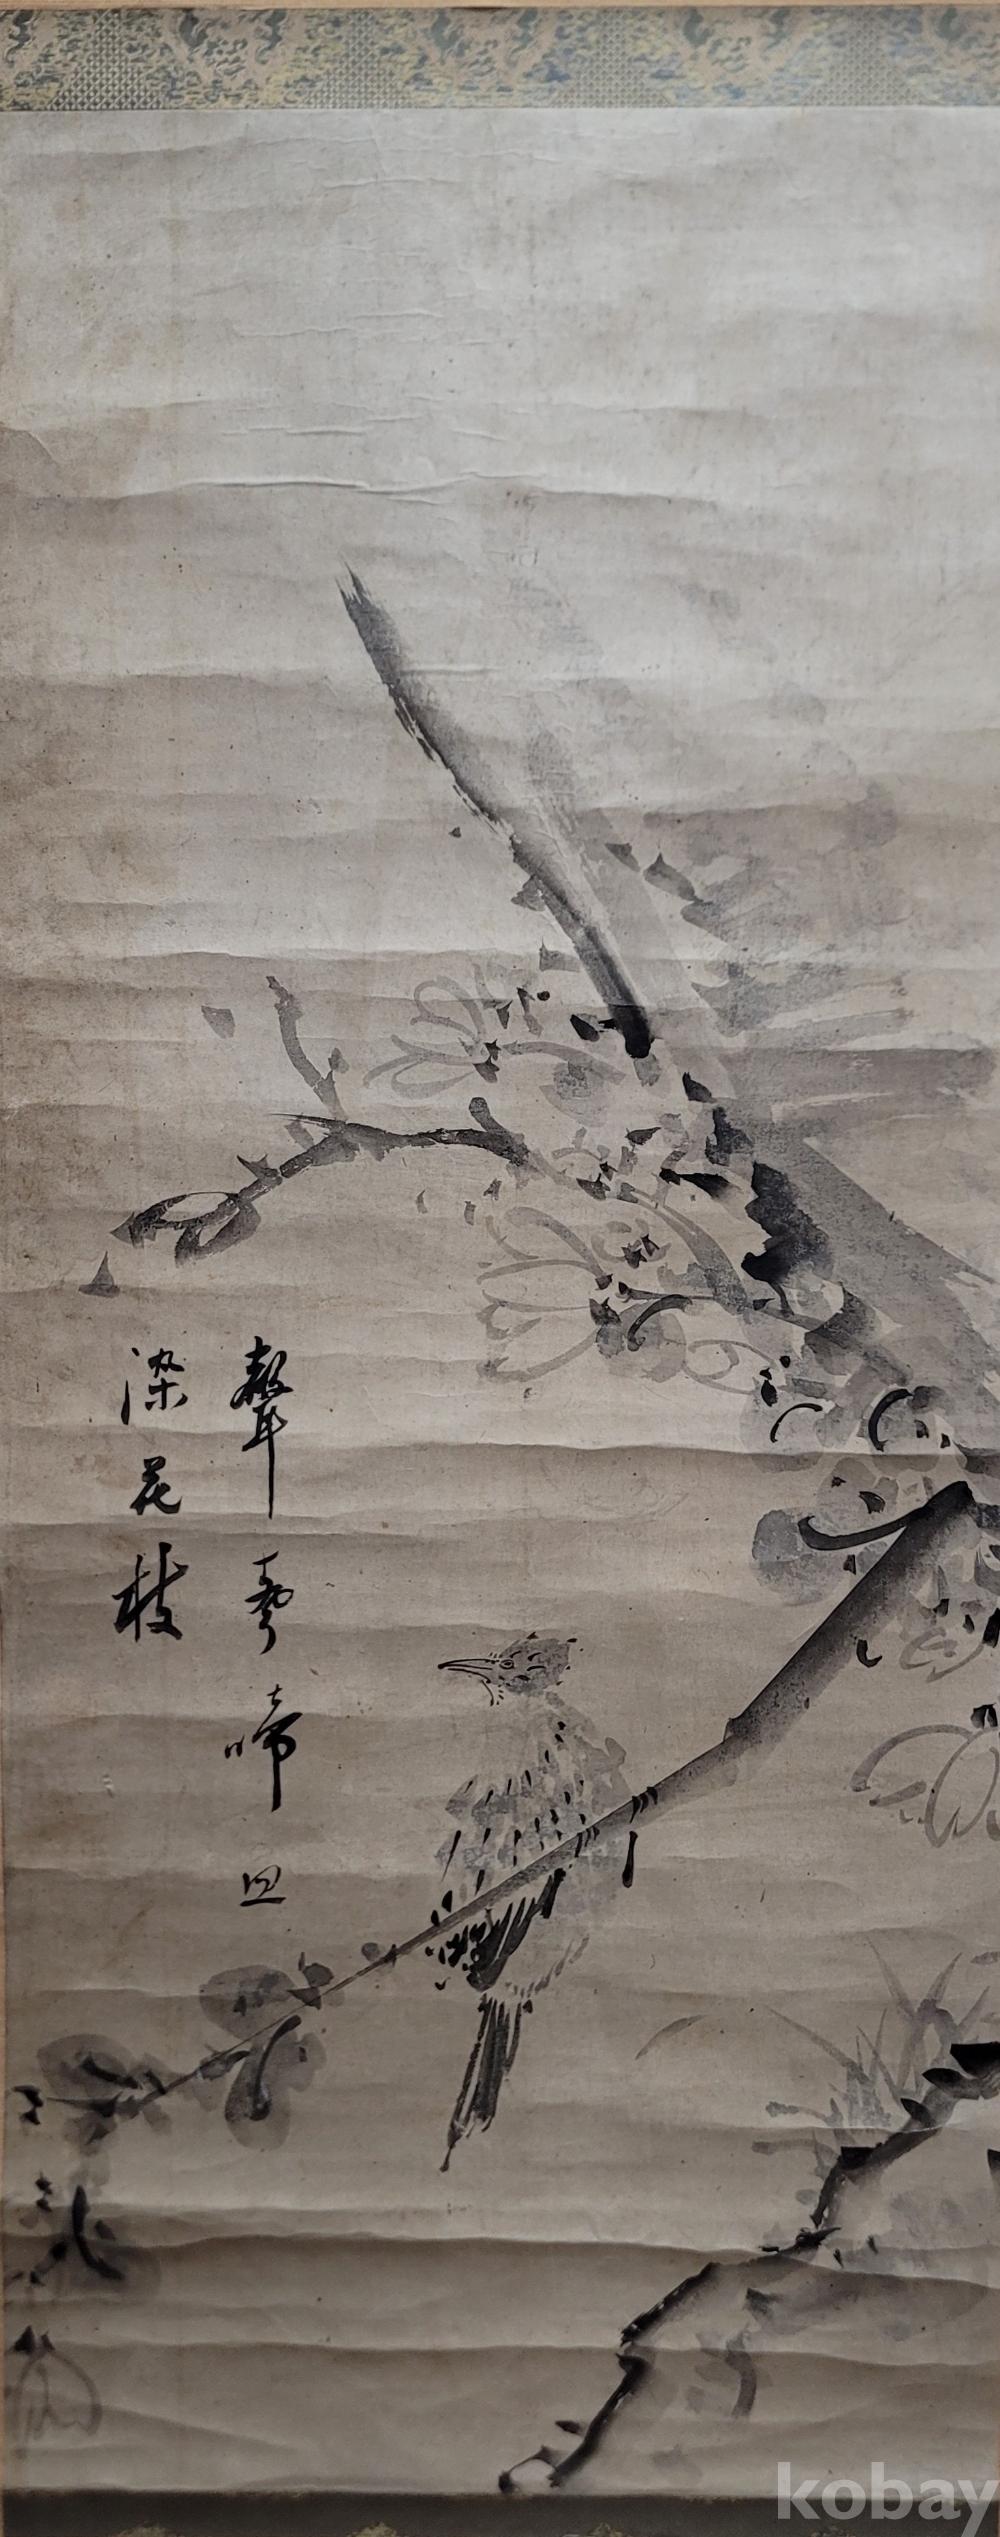 聲聲啼血
染花枝
kobay